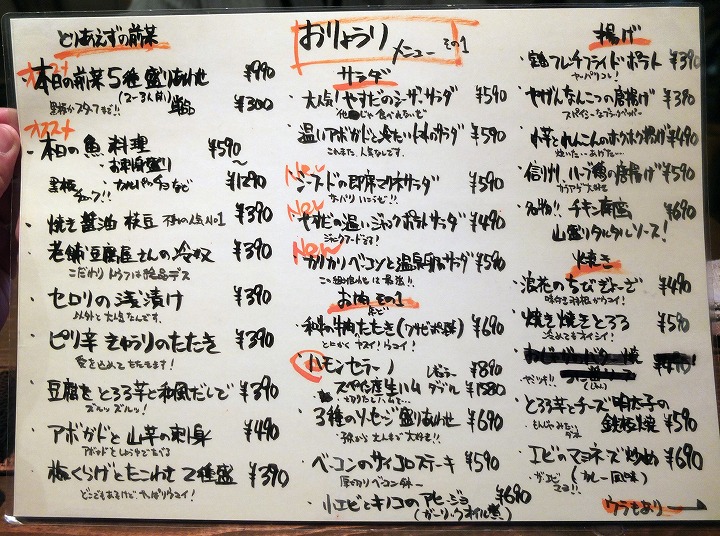 とりあえずの前菜
オススメ
本日の前菜5種盛りあわせ ¥990
(2〜3人前) 単品 ¥300
黒板かスタッフまで!!
オススメ
・本日の魚料理 ¥590
・お刺身盛り 〜
黒板チェック!! ・カルパッチョなど ¥1290
・焼き醤油枝豆 不動の人気No1 ¥390
・老舗豆腐屋さんの冷奴 ¥390
こだわりトウフは絶品デス
・セロリの浅漬け ¥390
以外と大人気なんです。
・ピリ辛きゅうりのたたき ¥390
愛を込めてたたきます!
・豆腐をとろろ芋と和風だしで ¥390
ズルッズルッ!
・アボガドと山芋の刺身 ¥490
アボガドとしょうゆでたべる
・梅くらげとたこわさ2種盛 ¥390
どこでもあるけど、やっぱりウマイ!
おりょうり メニュー その1
サラダ
・大人気!やすだのシーザーサラダ ¥590
・温いアボカドと冷たいトマトのサラダ ¥590
これまた、人気なんです。
New
・シーフードの即席マリネサラダ ¥590
New
・やすだの温いジャックポテトサラダ ¥490
New
・カリカリベーコンと温泉卵のサラダ ¥590
この組み合わせは最強!!
お肉その1
・和牛の牛肉たたき(ワサビポン酢) ¥690
とにかくヤスイ!ウマイ!
・ハモンセラーノ レギュラー ¥890
スペイン産生ハム ダブル ¥1580
・3種のソーセージ盛りあわせ ¥690
子供から大人まで大好き!!
・ベーコンのサイコロステーキ ¥590
厚切りベーコン
・小エビとキノコのアヒージョ ¥690
(ガーリックオイル煮)
揚げ
・鶴フレンチフライドポテト ¥390
ヤッパリコレ!
・やげんなんこつの唐揚げ ¥390
スパイシーなブラックペッパー
・小芋とれんこんのホクホク揚げ ¥490
炊いた…あげた…
・信州ハーブ鶏の唐揚げ ¥590
カラアゲ大好き
・名物!!チキン南蛮 ¥690
山盛りタルタルソース!
焼き
・浪花のちびぎょーざ ¥490
・焼き焼きとろろ ¥590
冷めてもオイシイ!
¥490
・とろろ芋とチーズ明太子の
鉄板焼 ¥590
・エビのマヨネーズ炒め ¥690
(カレー風味)
ウラもあり→